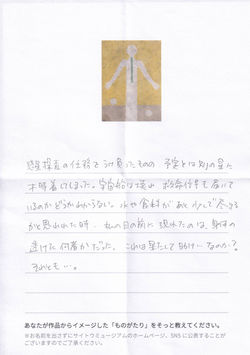 惑星探査の任務でうけ負ったものの 予定とは別の星に
不時着してしまった。宇宙船は壊れ 救命信号も届いて
いるのかどうかわからない。水や食料があと少しで尽きる
かと思われた時、私の目の前に現れたのは、身体の
透けた何者かだった。これは果たして助け…なのか?
それとも…。
あなたが作品からイメージした「ものがたり」をそっと教えてください。
※お名前を出さずにサイトウミュージアムのホームページ、SNS に公表することが
ございますのでご了承ください。